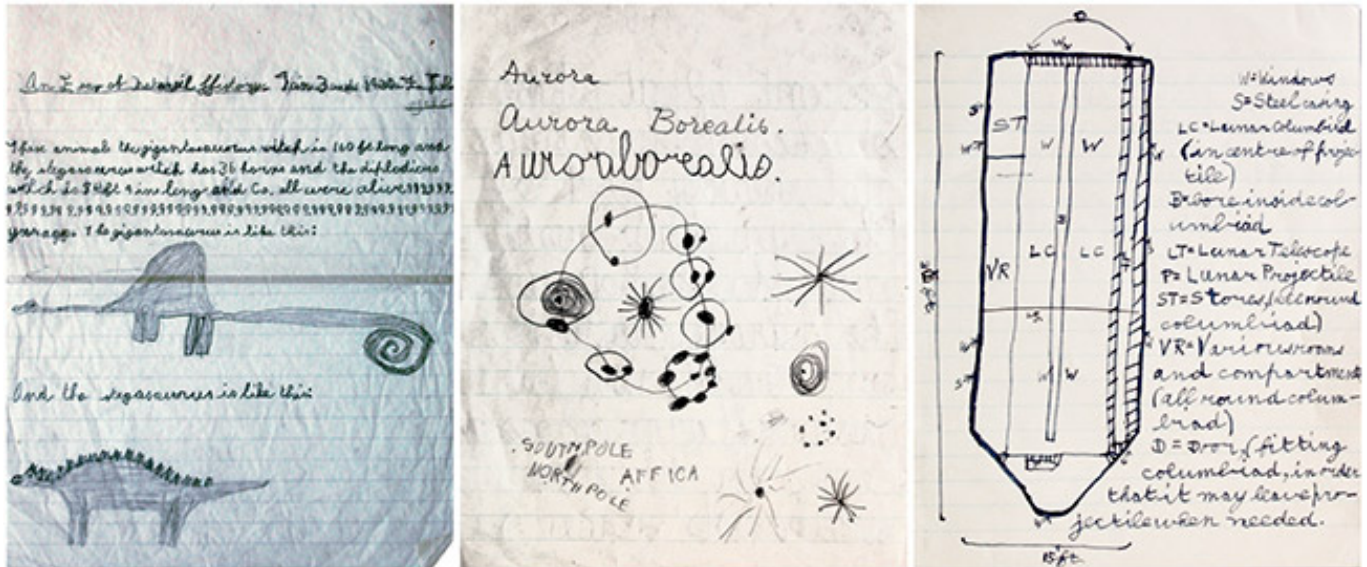 This animal the gigantosaurus witch is 160 ft long and
the stegosaurus witch has 36 horns and the diplodicus
witch is 80ft 9 ins long and Co. all were alive
garage. The gigantosaurus is like this:
And the stegosaurus is like this:
Aurora
Aurora Borealis.
Auroaborealis.
SOUTH POLE
NORTH POLE
AFFICA
D
W
S
ST
W
W
W
VR
LC
LC
W
W
S
15 ft.
W=Windows
S=Steel casing
LC=Lunar Columbiad
(in centre of projec-
tile)
B=bore inside col-
umbiad
LT=Lunar Telescope
P=Lunar Projectile
ST=Stores (all round
columbiad)
VR=Various rooms
and compartments
(all round colum-
biad)
D=Door (fitting
columbiad, in order
that it may leave pro-
jectile when needed.